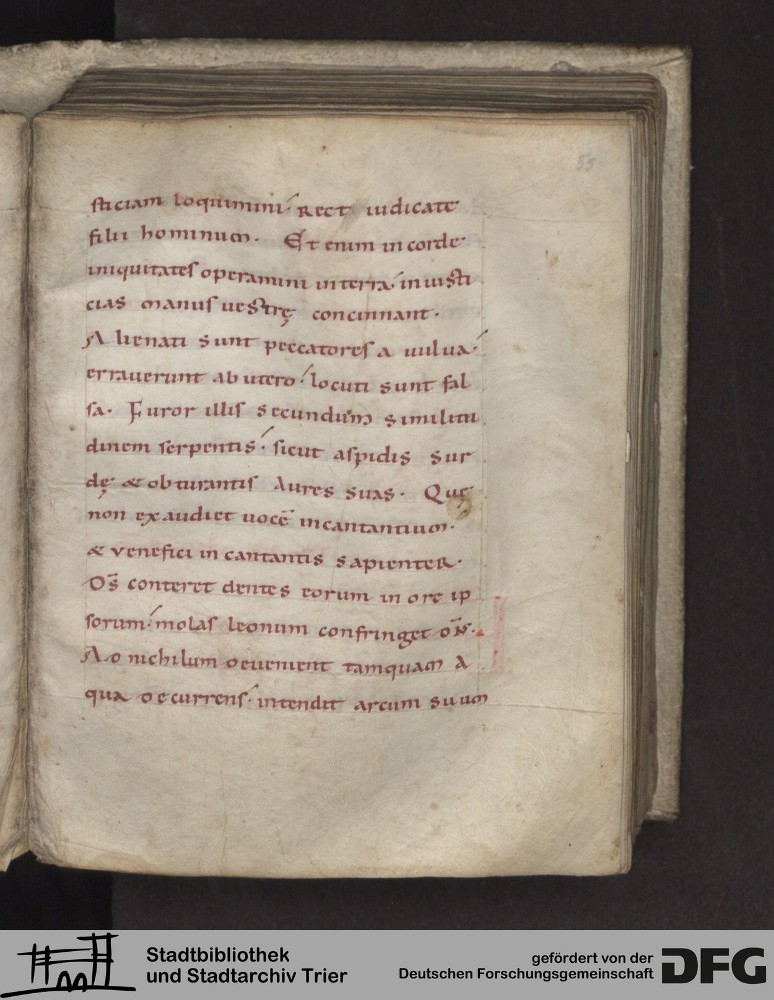 55
sticiam loquimini· Rect iudicate
filii hominum. Et enim in corde
iniquitates operamini in terra· iniusti
cias manus uestrę concinnant.
Alienati sunt peccatores a uulua·
errauerunt ab utero· locuti sunt fal
sa. Furor illis secundum similitu
dinem serpentis· sicut aspidis sur
dę & obturantis Aures suas. Quę
non exaudiet uocē incantantium.
& venefici in cantantis sapienter.
Ds̄ conteret dentes eorum in ore ip
sorum· molas leonum confringet dn̄s.
Ad nichilum deuenient tamquam a
qua decurrens· intendit arcum suum
Stadtbibliothek
und Stadtarchiv Trier
gefördert von der
Deutschen Forschungsgemeinschaft
DFG